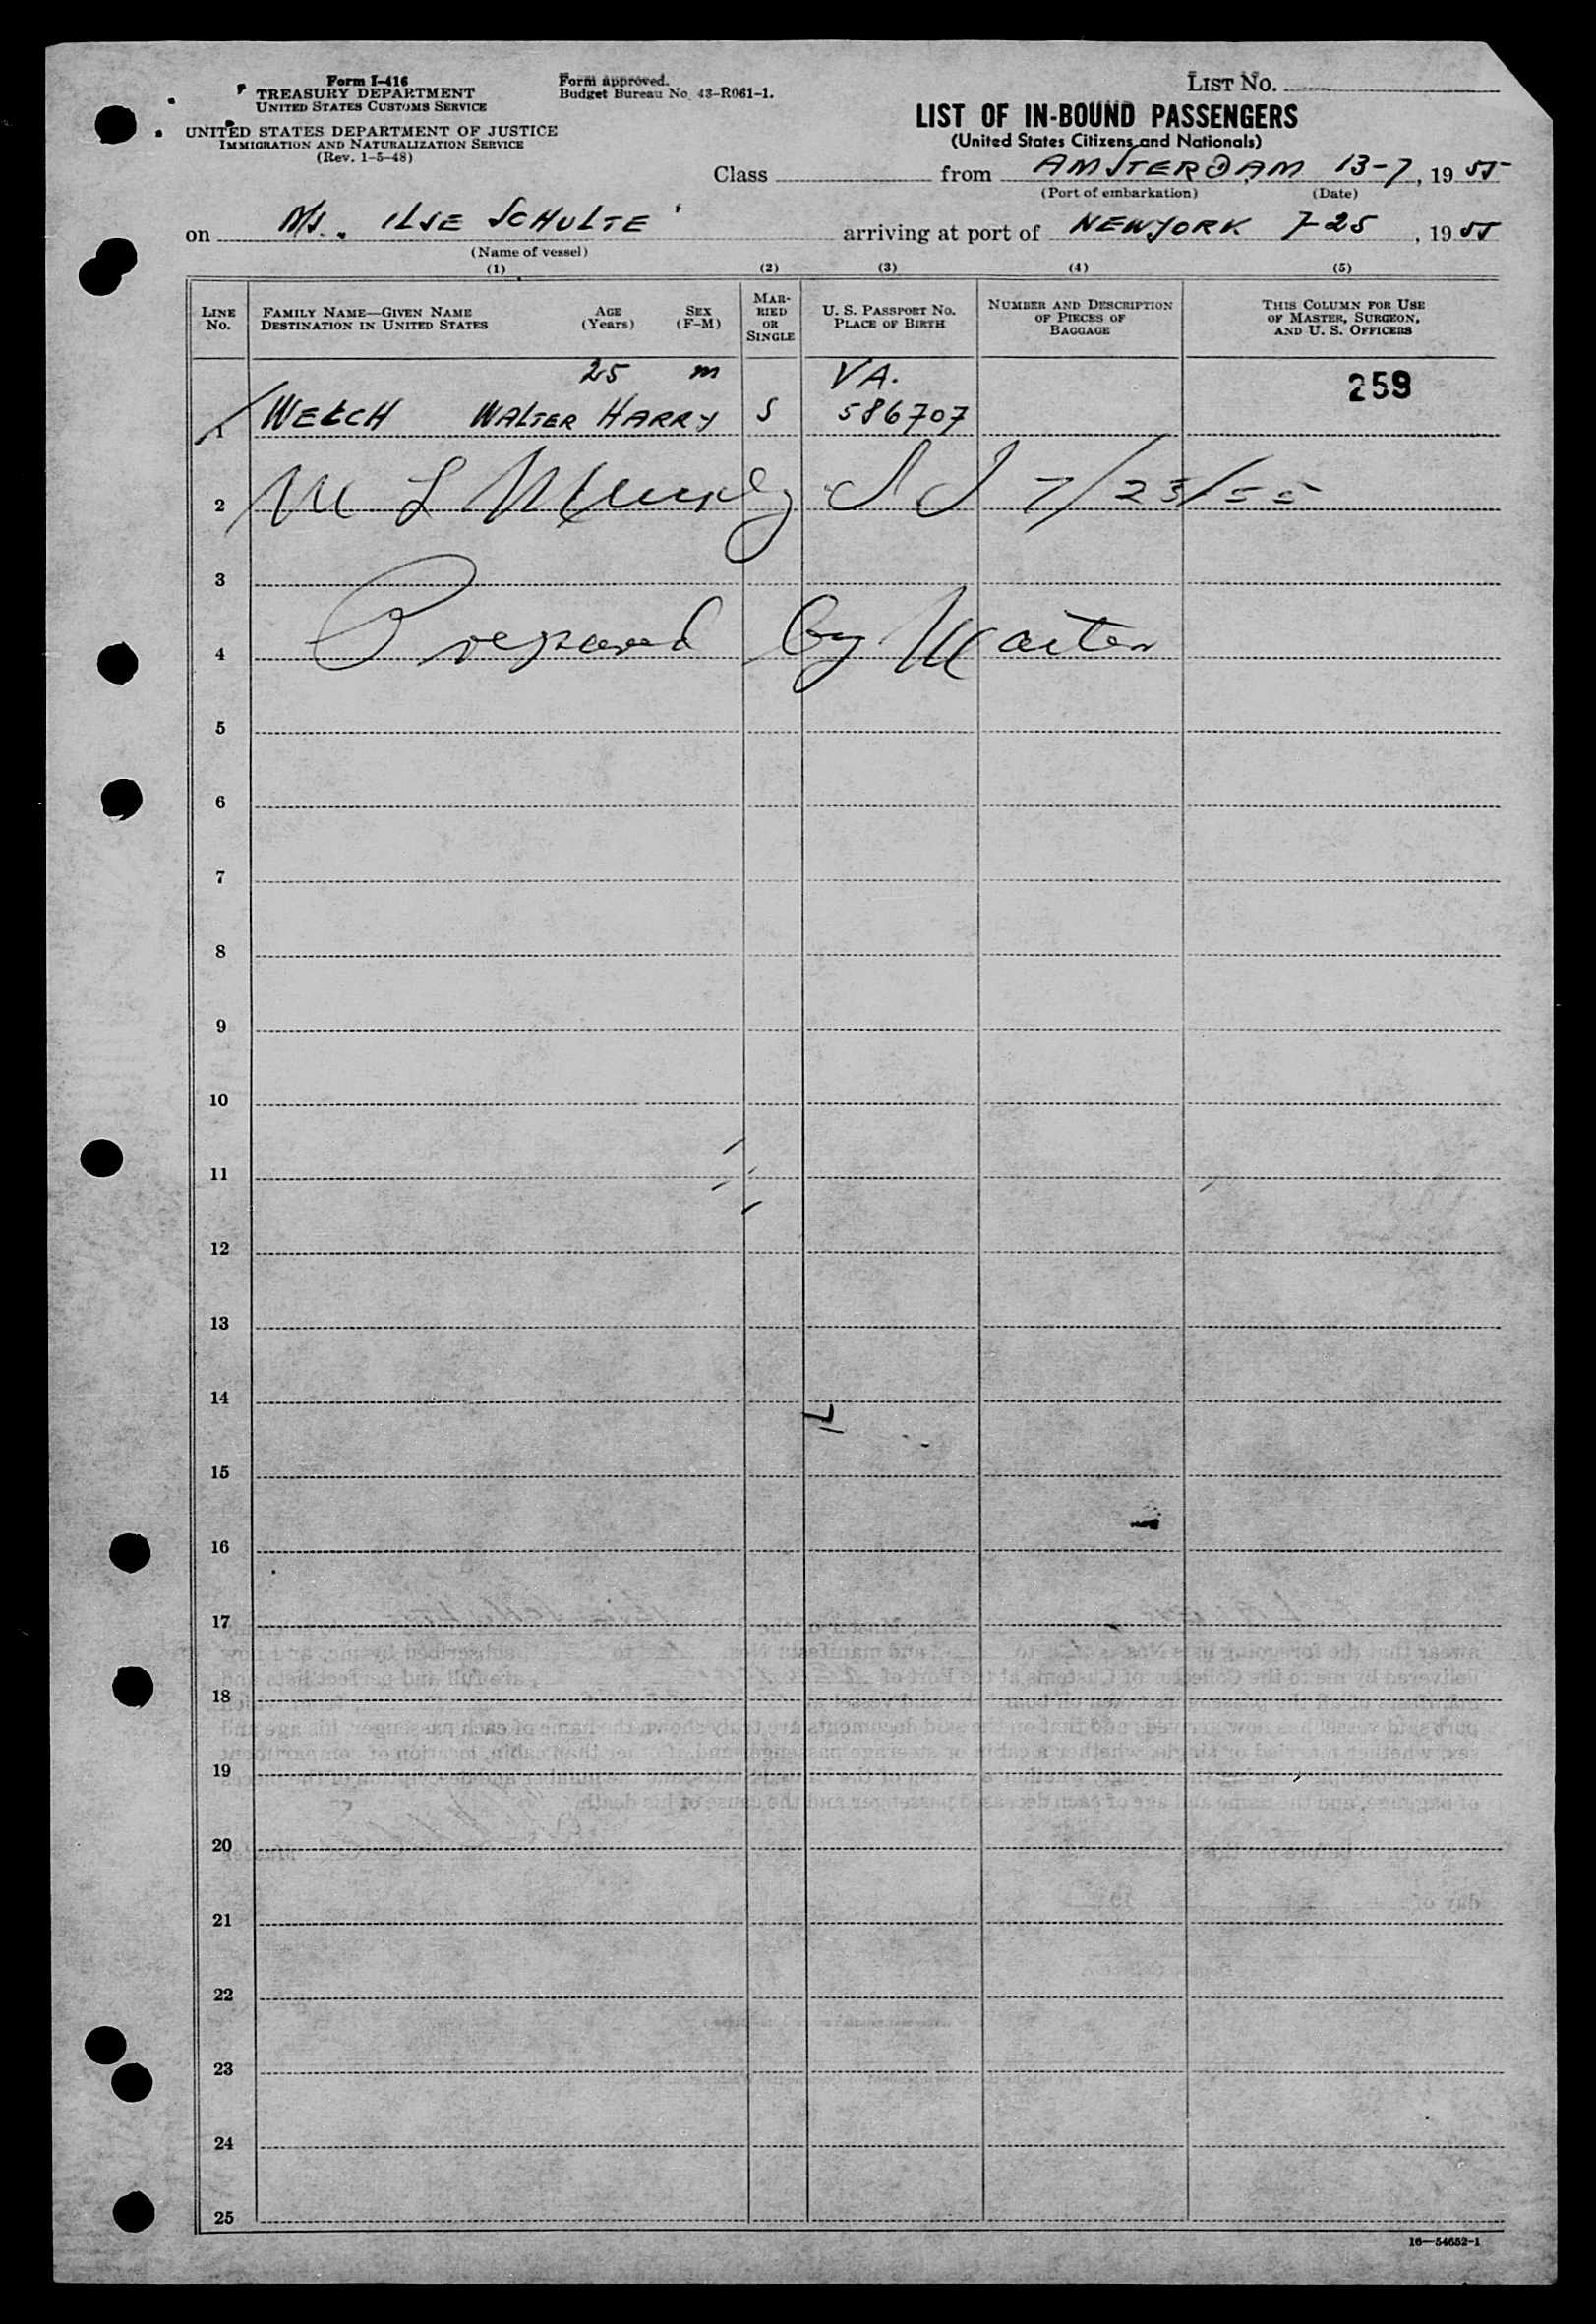 Form I-416
TREASURY DEPARTMENT
UNITED STATES CUSTOMS SERVICE
UNITED STATES DEPARTMENT OF JUSTICE
IMMIGRATION AND NATURALIZATION SERVICE
(Rev. 1-5-48)
Form approved.
Budget Bureau No. 43-R061-1.
LIST NO.
LIST OF IN-BOUND PASSENGERS
(United States Citizens and Nationals)
Class from AMSTERDAM 13-7, 1955
(Port of embarkation) (Date)
on M/S. ILSE SCHULTE arriving at port of NEWYORK 7-25, 1955
(Name of vessel)
(1) (2) (3) (4) (5)
LINE NO.
FAMILY NAME—GIVEN NAME AGE SEX
DESTINATION IN UNITED STATES (Years) (F-M)
MARRIED OR SINGLE
U. S. PASSPORT NO.
PLACE OF BIRTH
NUMBER AND DESCRIPTION
OF PIECES OF
BAGGAGE
THIS COLUMN FOR USE
OF MASTER, SURGEON,
AND U. S. OFFICERS
25 m VA. 259
1 WELCH WALTER HARRY S 586707
2 M L Murphy 7/25/55
3
4 Prepared by Master
5
6
7
8
9
10
11
12
13
14
15
16
17
18
19
20
21
22
23
24
25
16—54652-1